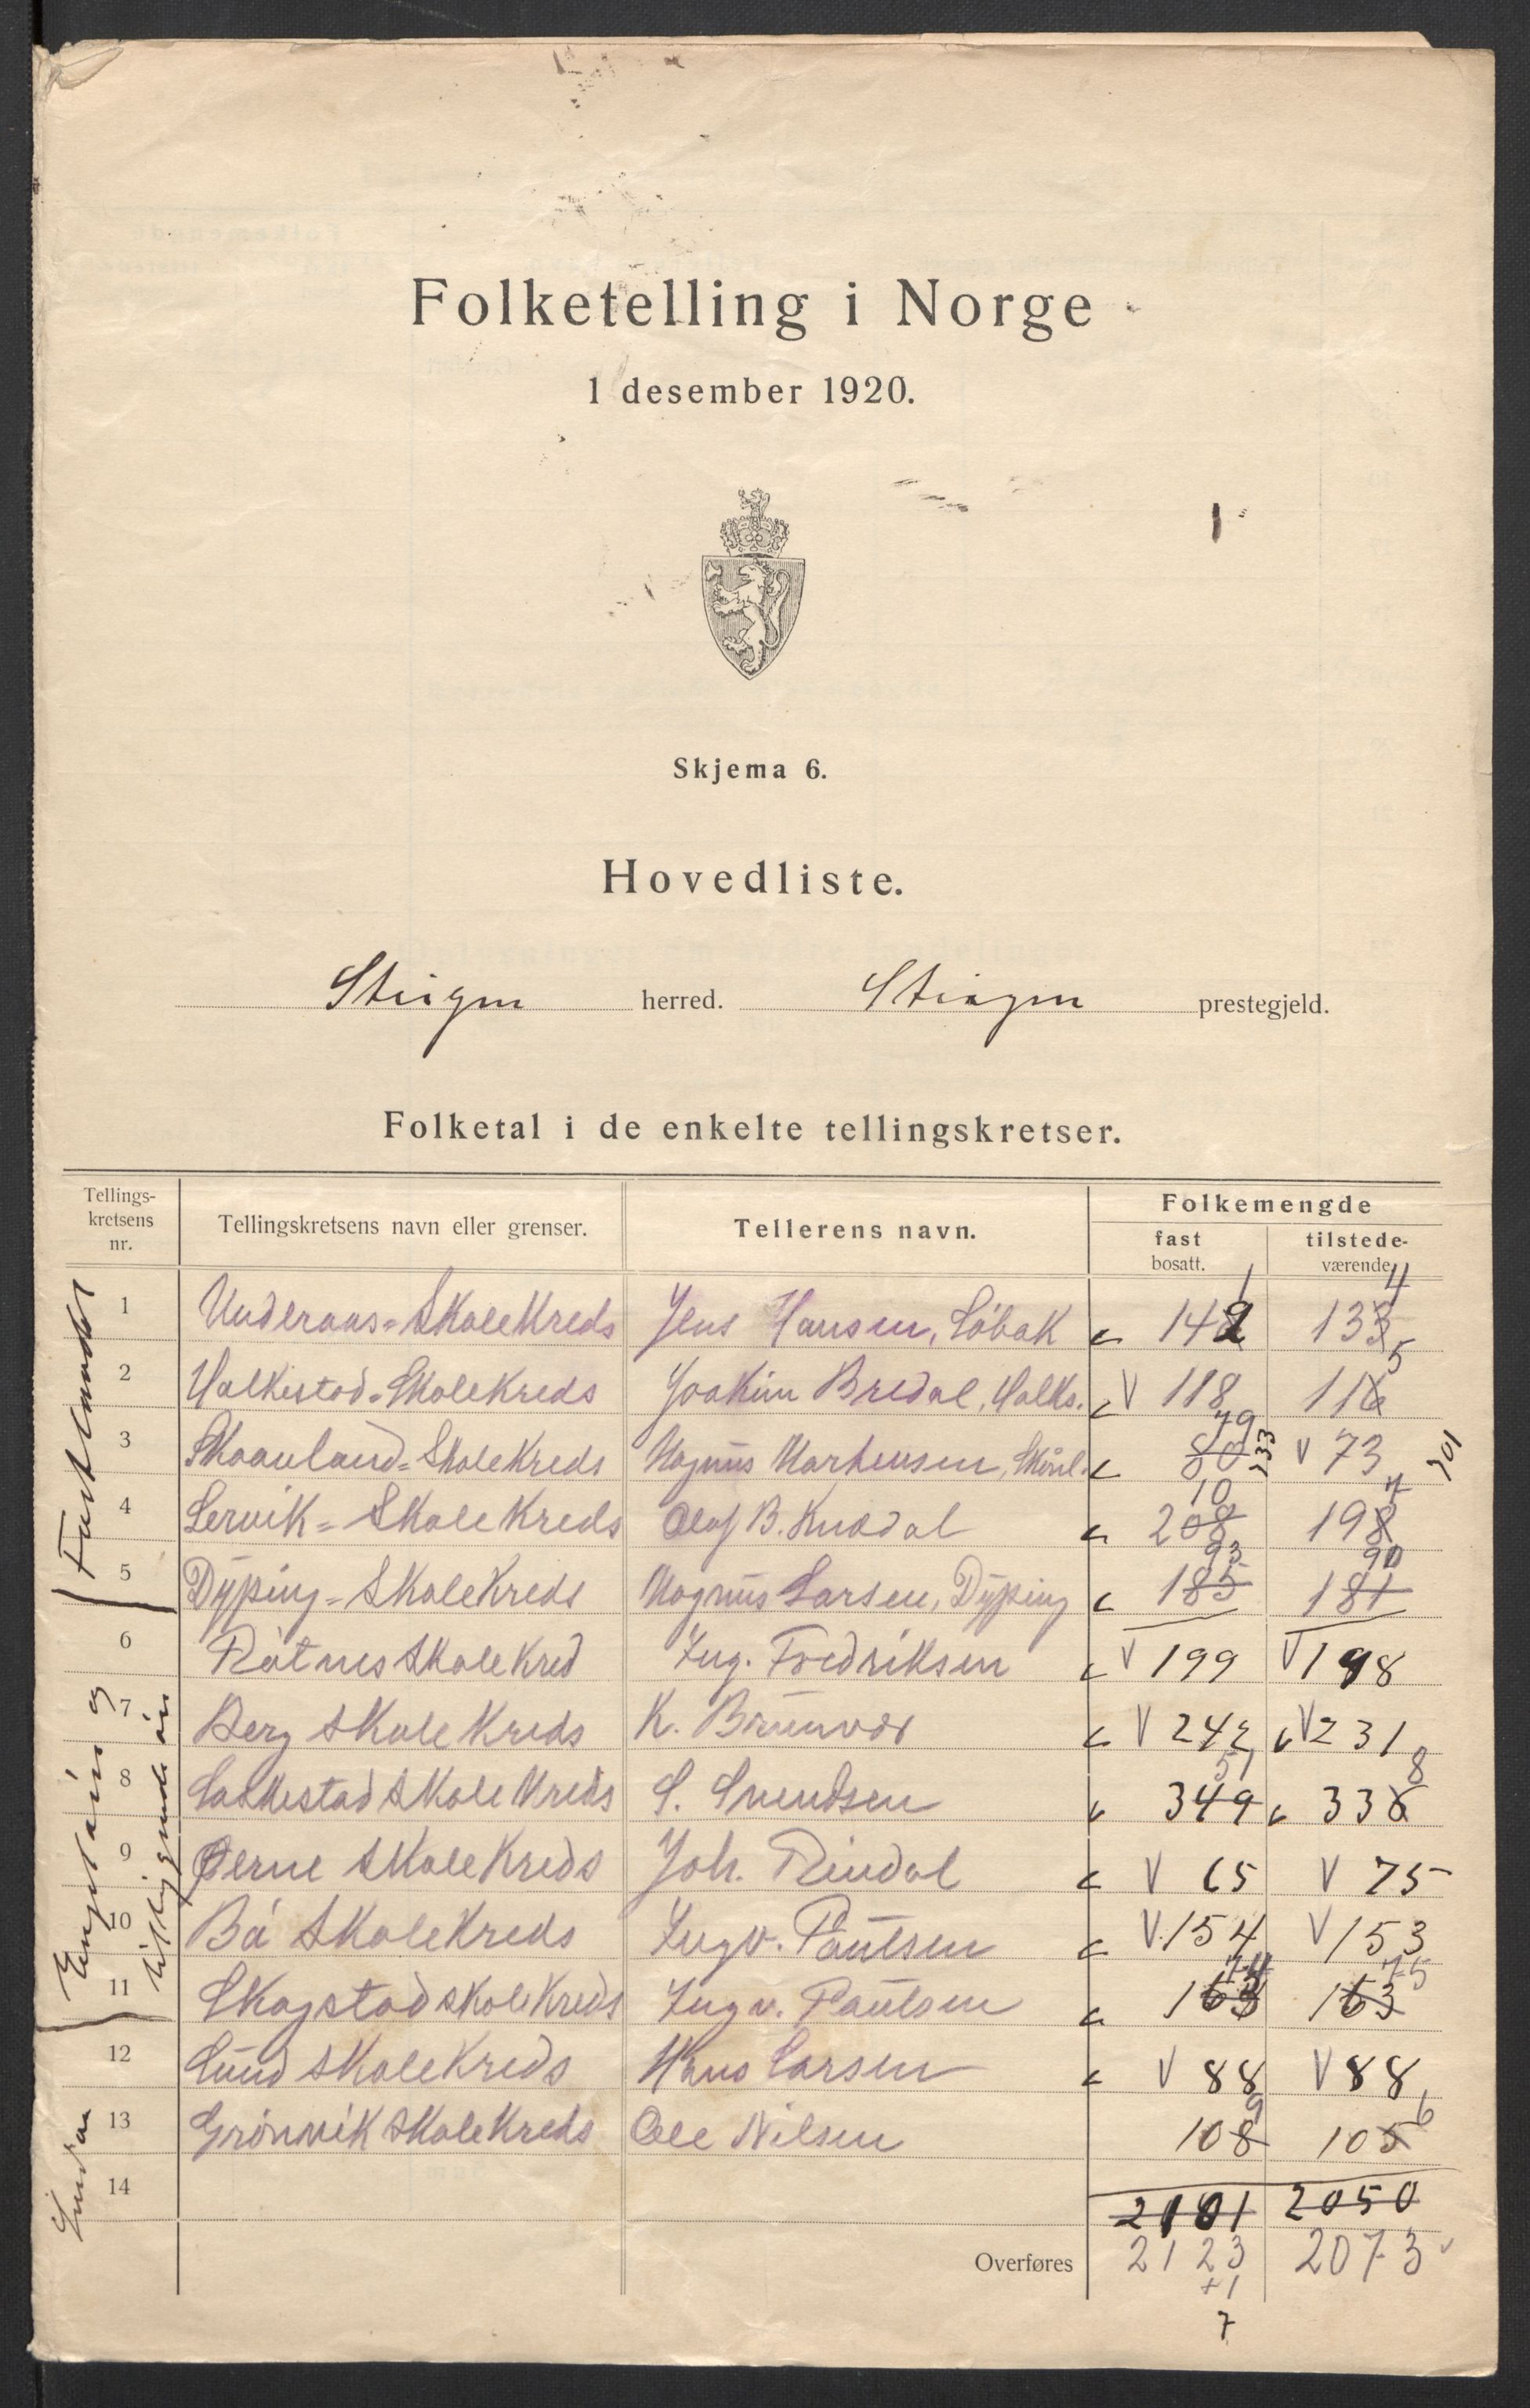 Folketelling i Norge
1 desember 1920.
Skjema 6.
Hovedliste.
Steigen herred. Steigen prestegjeld.
Folketal i de enkelte tellingskretser.
Tellings-kretsens nr. Tellingskretsens navn eller grenser. Tellerens navn. Folkemengde
fast bosatt. tilstede-værende
Fastlandet
1 Underaas-SkoleKreds Jens Hansen, Löbak 142 1 133 4
2 Halkestad-SkoleKreds Joakim Bredal, Halks. V 118 116 5
3 Skaanland-SkoleKreds Magnus Marhensen, Skånl. 80 79 733 V 73 701
4 Lervik-SkoleKreds Olaf B. Knædal 208 10 198 7
5 Dÿping-SkoleKreds Magnus Larsen, Dÿping 185 93 181 90
6 Rötnes SkoleKred Ing. Fredriksen V 199 V 198
Engeløen og
7 Berg SkoleKreds K. Brünvær V 242 V 231
8 Laskestad SkoleKreds S. Svendsen 349 51 336 8
9 Øerne SkoleKreds Joh. Rindal V 65 V 75
10 Bö SkoleKreds Ingv. Paülsen V 154 V 153
11 Skagstad skoleKreds Ingv. Paülsen 163 74 163 75
12 Lünd SkoleKreds Hans Larsen V 88 V 88
13 Grönvik SkoleKreds Ole Nilsen 108 9 105 6
14
2101 2050
Overføres 2123 2073
+1
7